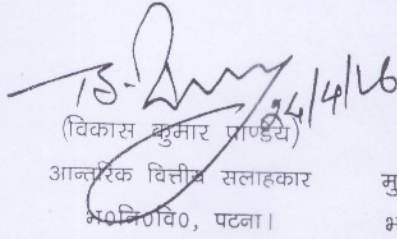 24/4/26
(विकास कुमार पाण्डेय)
आन्तरिक वित्तीय सलाहकार
भ०नि०वि०, पटना।
मु
भ